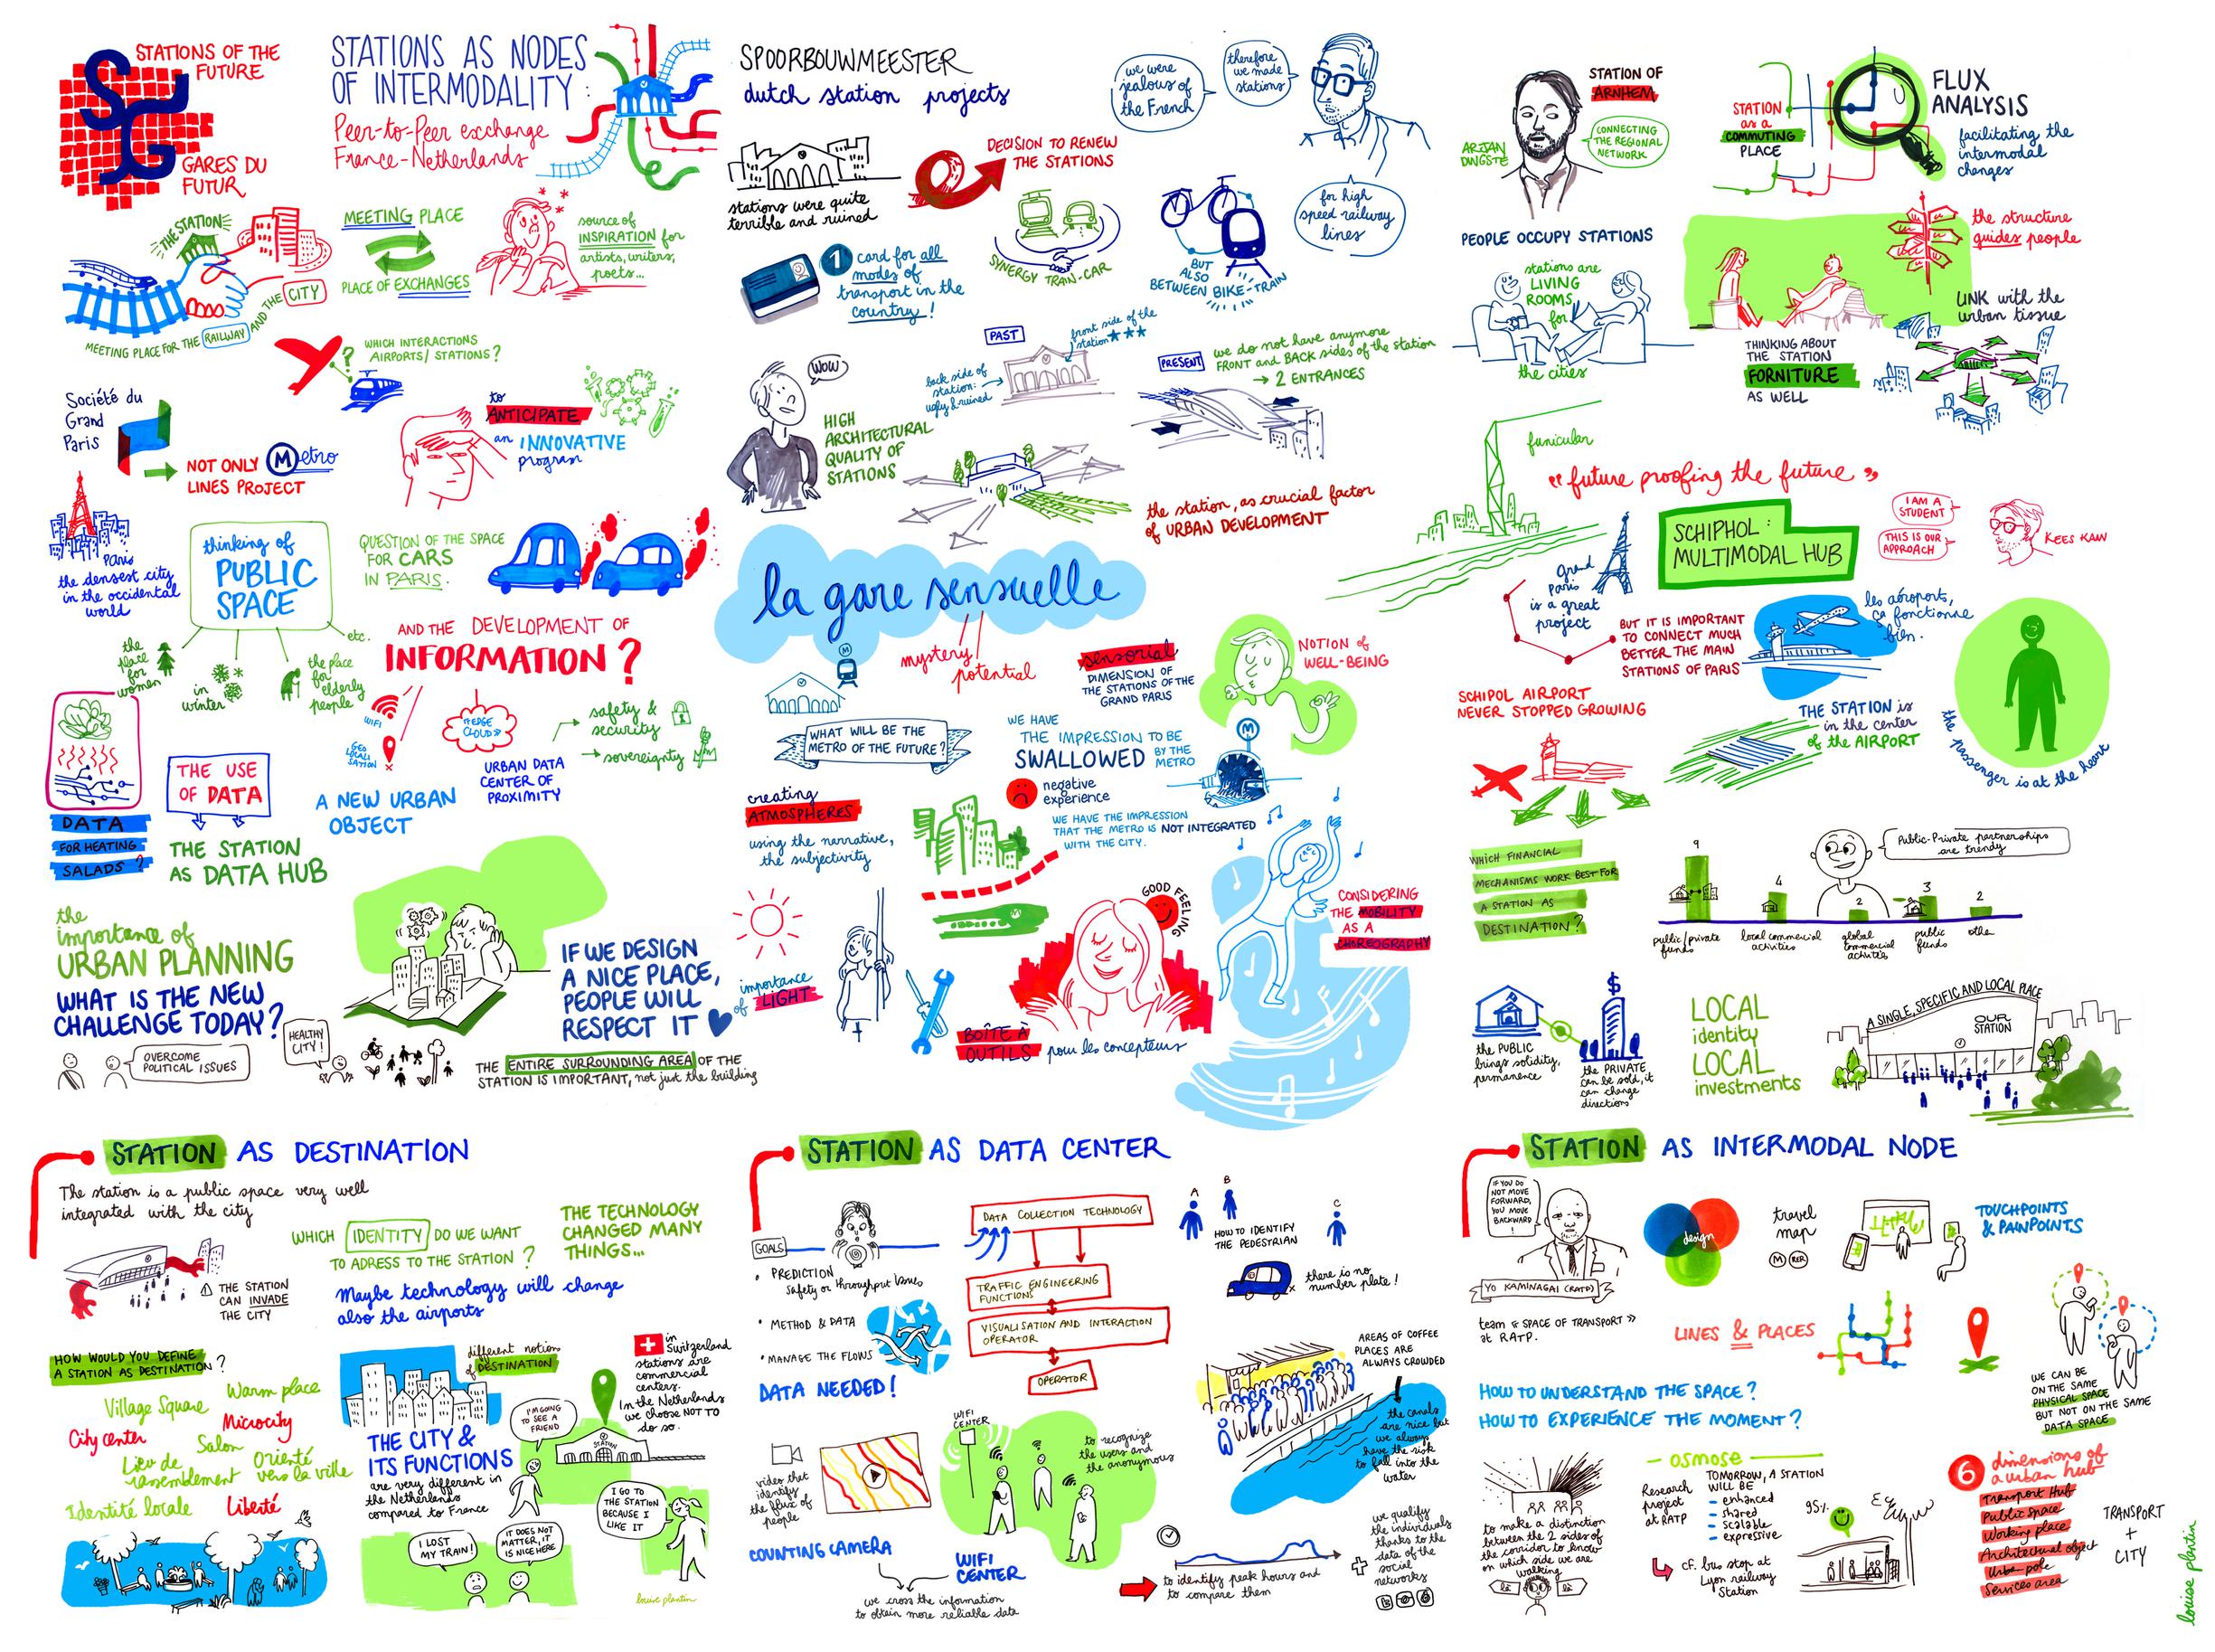 STATIONS OF THE
FUTURE
SG
GARES DU
FUTUR
STATIONS AS NODES
OF INTERMODALITY :
Peer-to-Peer exchange
France-Netherlands
THE STATION
MEETING PLACE FOR THE RAILWAY AND THE CITY
MEETING PLACE
PLACE OF EXCHANGES
source of
INSPIRATION for
artists, writers,
poets...
?
WHICH INTERACTIONS
AIRPORTS/STATIONS?
Société du
Grand
Paris
NOT ONLY Metro
LINES PROJECT
to
ANTICIPATE
an INNOVATIVE
program
Paris
the densest city
in the occidental
world
thinking of
PUBLIC
SPACE
the
place
for
women
in
winter
the place
for
elderly
people
etc.
QUESTION OF THE SPACE
FOR CARS
IN PARIS.
AND THE DEVELOPMENT OF
INFORMATION ?
WIFI
GEO
LOCALI
SATION
"EDGE
CLOUD"
URBAN DATA
CENTER OF
PROXIMITY
safety &
security
sovereignty
DATA
FOR HEATING
SALADS ?
THE USE
OF DATA
THE STATION
AS DATA HUB
A NEW URBAN
OBJECT
the
importance of
URBAN PLANNING
WHAT IS THE NEW
CHALLENGE TODAY?
OVERCOME
POLITICAL ISSUES
HEALTHY
CITY!
IF WE DESIGN
A NICE PLACE,
PEOPLE WILL
RESPECT IT
THE ENTIRE SURROUNDING AREA OF THE
STATION IS IMPORTANT, not just the building
SPOORBOUWMEESTER
dutch station projects
we were
jealous of
the French
therefore
we made
stations
for high
speed railway
lines
stations were quite
terrible and ruined
DECISION TO RENEW
THE STATIONS
1 card for all
modes of
transport in the
country!
SYNERGY TRAIN-CAR
BUT
ALSO
BETWEEN BIKE-TRAIN
WOW
HIGH
ARCHITECTURAL
QUALITY OF
STATIONS
PAST
front side of the
station ★★★
back side of
station:
ugly & ruined
PRESENT
we do not have anymore
FRONT and BACK sides of the station
→ 2 ENTRANCES
the station, as crucial factor
of URBAN DEVELOPMENT
la gare sensuelle
mystery
potential
M
WHAT WILL BE THE
METRO OF THE FUTURE?
sensorial
DIMENSION OF
THE STATIONS OF THE
GRAND PARIS
NOTION of
WELL-BEING
WE HAVE
THE IMPRESSION TO BE
SWALLOWED BY THE
METRO
M
negative
experience
WE HAVE THE IMPRESSION
THAT THE METRO IS NOT INTEGRATED
WITH THE CITY.
creating
ATMOSPHERES
using the narrative,
the subjectivity
M
importance
of LIGHT
GOOD FEELING
BOÎTE À
OUTILS pour les concepteurs
CONSIDERING
THE MOBILITY
AS A
CHOREOGRAPHY
STATION OF
ARNHEM
ARJAN
DINGSTE
CONNECTING
THE REGIONAL
NETWORK
STATION
as a
COMMUTING
PLACE
FLUX
ANALYSIS
facilitating the
intermodal
changes
PEOPLE OCCUPY STATIONS
stations are
LIVING
ROOMS
for
the cities
the structure
guides people
THINKING ABOUT
THE STATION
FORNITURE
AS WELL
LINK with the
urban tissue
funicular
"future proofing the future"
SCHIPHOL :
MULTIMODAL HUB
I AM A
STUDENT
THIS IS OUR
APPROACH
Grand
Paris
is a great
project
BUT IT IS IMPORTANT
TO CONNECT MUCH
BETTER THE MAIN
STATIONS OF PARIS
les aéroports,
ça fonctionne
bien.
SCHIPOL AIRPORT
NEVER STOPPED GROWING
THE STATION is
in the center
of the AIRPORT
the passenger is at the heart
WHICH FINANCIAL
MECHANISMS WORK BEST FOR
A STATION AS
DESTINATION?
Public-Private partnerships
are trendy
9
4
2
3
2
public/private
funds
local commercial
activities
global
commercial
activities
public
funds
other
the PUBLIC
brings solidity,
permanence
$
the PRIVATE
can be sold, it
can change
directions
LOCAL
identity
LOCAL
investments
A SINGLE, SPECIFIC AND LOCAL PLACE
OUR
STATION
STATION AS DESTINATION
The station is a public space very well
integrated with the city
THE STATION
CAN INVADE
THE CITY
WHICH IDENTITY DO WE WANT
TO ADRESS TO THE STATION ?
THE TECHNOLOGY
CHANGED MANY
THINGS...
Maybe technology will change
also the airports
HOW WOULD YOU DEFINE
A STATION AS DESTINATION?
Village Square
Warm place
City center
Microcity
Salon
Lieu de
rassemblement
Orienté
vers la ville
Identité locale
Liberté
different notions
of DESTINATION
THE CITY &
ITS FUNCTIONS
are very different in
the Netherlands
compared to France
in
Switzerland
stations are
commercial
centers.
In the Netherlands
we choose NOT TO
do so.
I'M GOING
TO SEE A
FRIEND
STATION
I GO TO
THE STATION
BECAUSE I
LIKE IT
I LOST
MY TRAIN!
IT DOES NOT
MATTER, IT
IS NICE HERE
louise plantin
STATION AS DATA CENTER
GOALS
• PREDICTION
Safety or throughput
• METHOD & DATA
• MANAGE THE FLOWS
DATA NEEDED!
DATA COLLECTION TECHNOLOGY
TRAFFIC ENGINEERING
FUNCTIONS
VISUALISATION AND INTERACTION
OPERATOR
OPERATOR
A
B
C
HOW TO IDENTIFY
THE PEDESTRIAN
there is no
number plate!
AREAS OF COFFEE
PLACES ARE
ALWAYS CROWDED
the canals
are nice but
we always
have the risk
to fall into the
water
video that
identify
the flux of
people
COUNTING CAMERA
WIFI
CENTER
to recognize
the users and
the anonymous
WIFI
CENTER
we cross the information
to obtain more reliable data
to identify peak hours and
to compare them
we qualify
the individuals
thanks to the
data of the
social
networks
STATION AS INTERMODAL NODE
IF YOU DO
NOT MOVE
FORWARD,
YOU MOVE
BACKWARD
!
YO KAMINAGAI (RATP)
team "SPACE OF TRANSPORT"
at RATP.
design
travel
map
M RER
TOUCHPOINTS
& PAINPOINTS
LINES & PLACES
HOW TO UNDERSTAND THE SPACE?
HOW TO EXPERIENCE THE MOMENT?
WE CAN BE
ON THE SAME
PHYSICAL SPACE
BUT NOT ON THE SAME
DATA SPACE
to make a distinction
between the 2 sides of
the corridor to know
on which side we are
walking
là
là
- OSMOSE
Research
project
at RATP
TOMORROW, A STATION
WILL BE
- enhanced
- shared
- scalable
- expressive
cf. bus stop at
Lyon railway
Station
95%
6 dimensions of
a urban hub
Transport Hub
Public Space
Working place
Architectural object
Urban pole
Services area
TRANSPORT
+
CITY
louise plantin